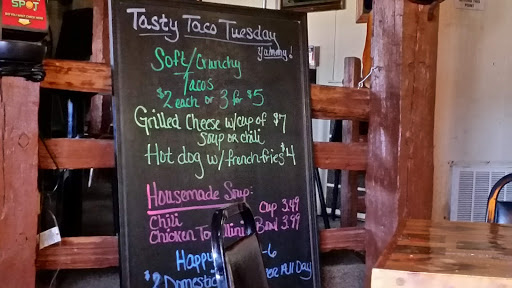 SPOT
Tasty Taco Tuesday
Yummy!
Soft/Crunchy
Tacos
$2 each or 3 for $5
Grilled Cheese w/cup of $7
Soup or chili
Hot dog w/french-fries $4
Housemade Soup:
Chili Cup 3.49
Chicken Bowl 3.99
Happy -6
$2 Domestic Full Day